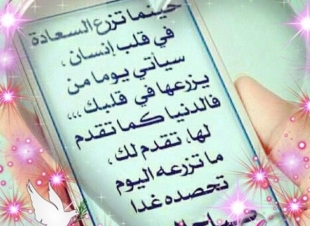 حينما تزرع السعادة
في قلب إنسان ،
سيأتي يوما من
يزرعها في قلبك ،،،
فالدنيا كما تقدم
لها، تقدم لك ،
ما تزرعه اليوم
تحصده غدا